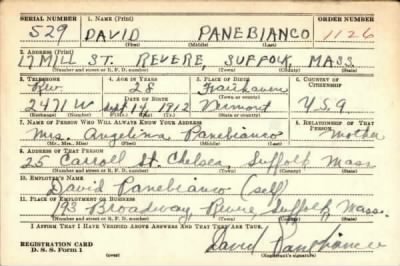 SERIAL NUMBER 1. NAME (Print) ORDER NUMBER
529 DAVID PANEBIANCO 1126
(First) (Middle) (Last)
2. ADDRESS (Print)
17 MILL ST. REVERE, SUFFOLK, MASS.
(Number and street or R. F. D. number) (Town) (County) (State)
3. TELEPHONE 4. AGE IN YEARS 5. PLACE OF BIRTH 6. COUNTRY OF CITIZENSHIP
Rev. 28 Fairhaven
DATE OF BIRTH
2471 W Sept 14, 1912 Vermont USA
(Exchange) (Number) (Mo.) (Day) (Yr.) (State or country)
7. NAME OF PERSON WHO WILL ALWAYS KNOW YOUR ADDRESS 8. RELATIONSHIP OF THAT PERSON
Mrs. Angelina Panebianco Mother
(Mr., Mrs., Miss) (First) (Middle) (Last)
9. ADDRESS OF THAT PERSON
25 Carroll St. Chelsea, Suffolk Mass
(Number and street or R. F. D. number) (Town) (County) (State)
10. EMPLOYER'S NAME
David Panebianco (self)
11. PLACE OF EMPLOYMENT OR BUSINESS
193 Broadway, Revere, Suffolk, Mass.
(Number and street or R. F. D. number) (Town) (County) (State)
I AFFIRM THAT I HAVE VERIFIED ABOVE ANSWERS AND THAT THEY ARE TRUE.
REGISTRATION CARD David Panebianco
D. S. S. Form 1 (over) (Registrant's signature)